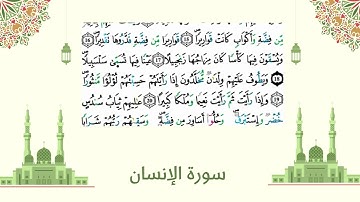 مِّن فِضَّةٍ وَأَكْوَابٍ كَانَتْ قَوَارِيرَا۠ ﴿١٥﴾ قَوَارِيرَا۟ مِن فِضَّةٍ قَدَّرُوهَا تَقْدِيرًا ﴿١٦﴾
وَيُسْقَوْنَ فِيهَا كَأْسًا كَانَ مِزَاجُهَا زَنجَبِيلًا ﴿١٧﴾ عَيْنًا فِيهَا تُسَمَّىٰ سَلْسَبِيلًا
﴿١٨﴾ وَيَطُوفُ عَلَيْهِمْ وِلْدَانٌ مُّخَلَّدُونَ إِذَا رَأَيْتَهُمْ حَسِبْتَهُمْ لُؤْلُؤًا مَّنثُورًا
﴿١٩﴾ وَإِذَا رَأَيْتَ ثَمَّ رَأَيْتَ نَعِيمًا وَمُلْكًا كَبِيرًا ﴿٢٠﴾ عَالِيَهُمْ ثِيَابُ سُندُسٍ
خُضْرٌ وَإِسْتَبْرَقٌ وَحُلُّوا أَسَاوِرَ مِن فِضَّةٍ وَسَقَاهُمْ رَبُّهُمْ شَرَابًا
سورة الإنسان